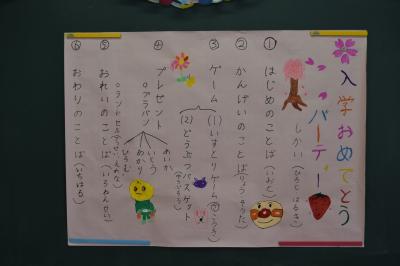 入学おめでとう
パーティー
しかい(ひろと はるき)
① はじめのことば(いおと)
② かんげいのことば(りょう そうた)
③ ゲーム
(1)いすとりゲーム
(2)どうぶつバスケット
④ プレゼント
○アラバン
めいか
いとう
わかり
ひろむ
○ランドセル
⑤ おれいのことば(いちねんせい)
⑥ おわりのことば(いちはる)